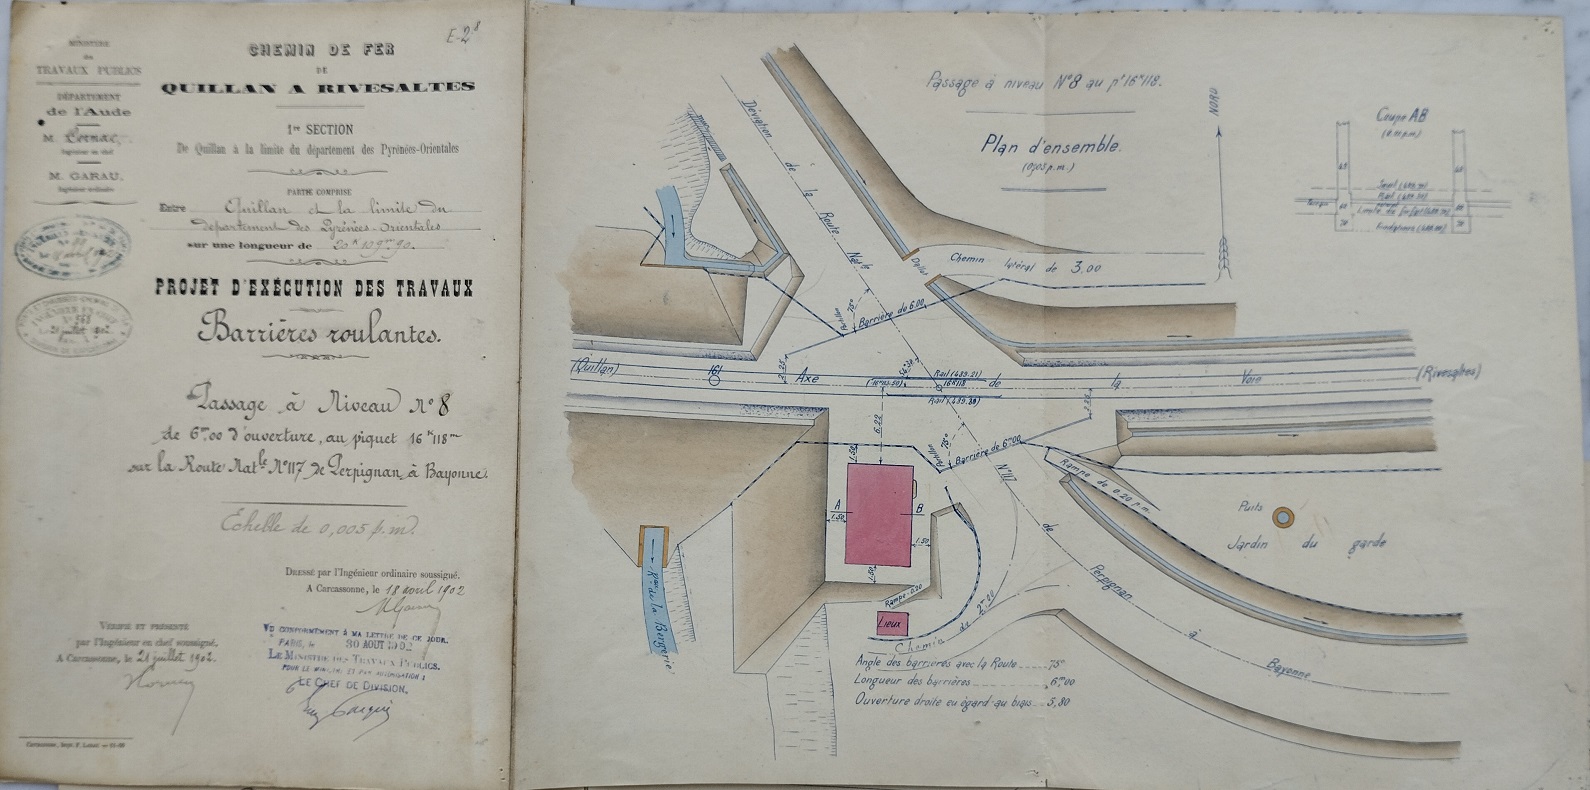 MINISTÈRE
des
TRAVAUX PUBLICS
DÉPARTEMENT
de l'Aude
M.
Ingénieur en chef
M. GARAU,
Ingénieur ordinaire
E-2⁸
CHEMIN DE FER
DE
QUILLAN A RIVESALTES
1re SECTION
De Quillan à la limite du département des Pyrénées-Orientales
PARTIE COMPRISE
Entre Quillan et la limite du
département des Pyrénées-Orientales
sur une longueur de 20k 109m,90.
PROJET D'EXÉCUTION DES TRAVAUX
Barrières roulantes.
Passage à Niveau N° 8
de 6m,00 d'ouverture, au piquet 16k 118m
sur la Route Natle N° 117 de Perpignan à Bayonne.
Echelle de 0,005 p.m.
Dressé par l'Ingénieur ordinaire soussigné.
A Carcassonne, le 18 avril 1902
Vérifié et présenté
par l'Ingénieur en chef soussigné.
A Carcassonne, le 21 juillet 1902.
VU CONFORMÉMENT À MA LETTRE DE CE JOUR.
PARIS, le 30 AOUT 1902
LE MINISTRE DES TRAVAUX PUBLICS.
POUR LE MINISTRE ET PAR AUTORISATION :
LE CHEF DE DIVISION,
Passage à niveau N°8 au pt 16k118.
Plan d'ensemble.
(0,005 p.m.)
NORD
Coupe AB
(0.01 p.m)
Déviation de la Route Natle N°117 de Perpignan à Bayonne
Dallot
Chemin latéral de 3,00
Portillon
75°
Barrière de 6.00
(Quillan)
161
Axe de la Voie
(Rivesaltes)
2.25
54°30'
Rail (489.21)
16k118
6.22
2.25
Portillon
75°
Barrière de 6m00
1.50
A
B
1.50
1.50
1.50
Rampe de 0.20 p.m.
Puits
Jardin du garde
Rampe 0.20
Lieux
Chemin de 2m00
Rau de la Bergerie
Angle des barrières avec la Route 75°
Longueur des barrières 6m00
Ouverture droite eu égard au biais 5,80